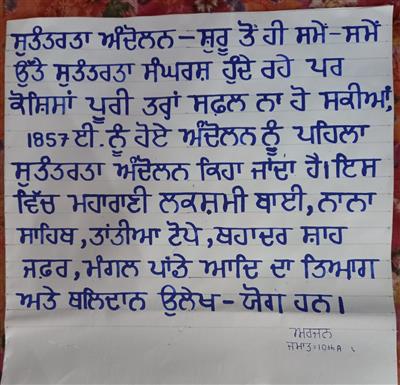 ਸੁਤੰਤਰਤਾ ਅੰਦੋਲਨ – ਸ਼ੁਰੂ ਤੋਂ ਹੀ ਸਮੇਂ-ਸਮੇਂ
ਉੱਤੇ ਸੁਤੰਤਰਤਾ ਸੰਘਰਸ਼ ਹੁੰਦੇ ਰਹੇ ਪਰ
ਕੋਸ਼ਿਸਾਂ ਪੂਰੀ ਤਰ੍ਹਾਂ ਸਫ਼ਲ ਨਾ ਹੋ ਸਕੀਆਂ,
1857 ਈ. ਨੂੰ ਹੋਏ ਅੰਦੋਲਨ ਨੂੰ ਪਹਿਲਾ
ਸੁਤੰਤਰਤਾ ਅੰਦੋਲਨ ਕਿਹਾ ਜਾਂਦਾ ਹੈ। ਇਸ
ਵਿੱਚ ਮਹਾਰਾਣੀ ਲਕਸ਼ਮੀ ਬਾਈ, ਨਾਨਾ
ਸਾਹਿਬ, ਤਾਂਤੀਆ ਟੋਪੇ, ਬਹਾਦਰ ਸ਼ਾਹ
ਜਫ਼ਰ, ਮੰਗਲ ਪਾਂਡੇ ਆਦਿ ਦਾ ਤਿਆਗ
ਅਤੇ ਬਲਿਦਾਨ ਉਲੇਖ-ਯੋਗ ਹਨ।
ਅਰਜਨ
ਜਮਾਤ:10th A